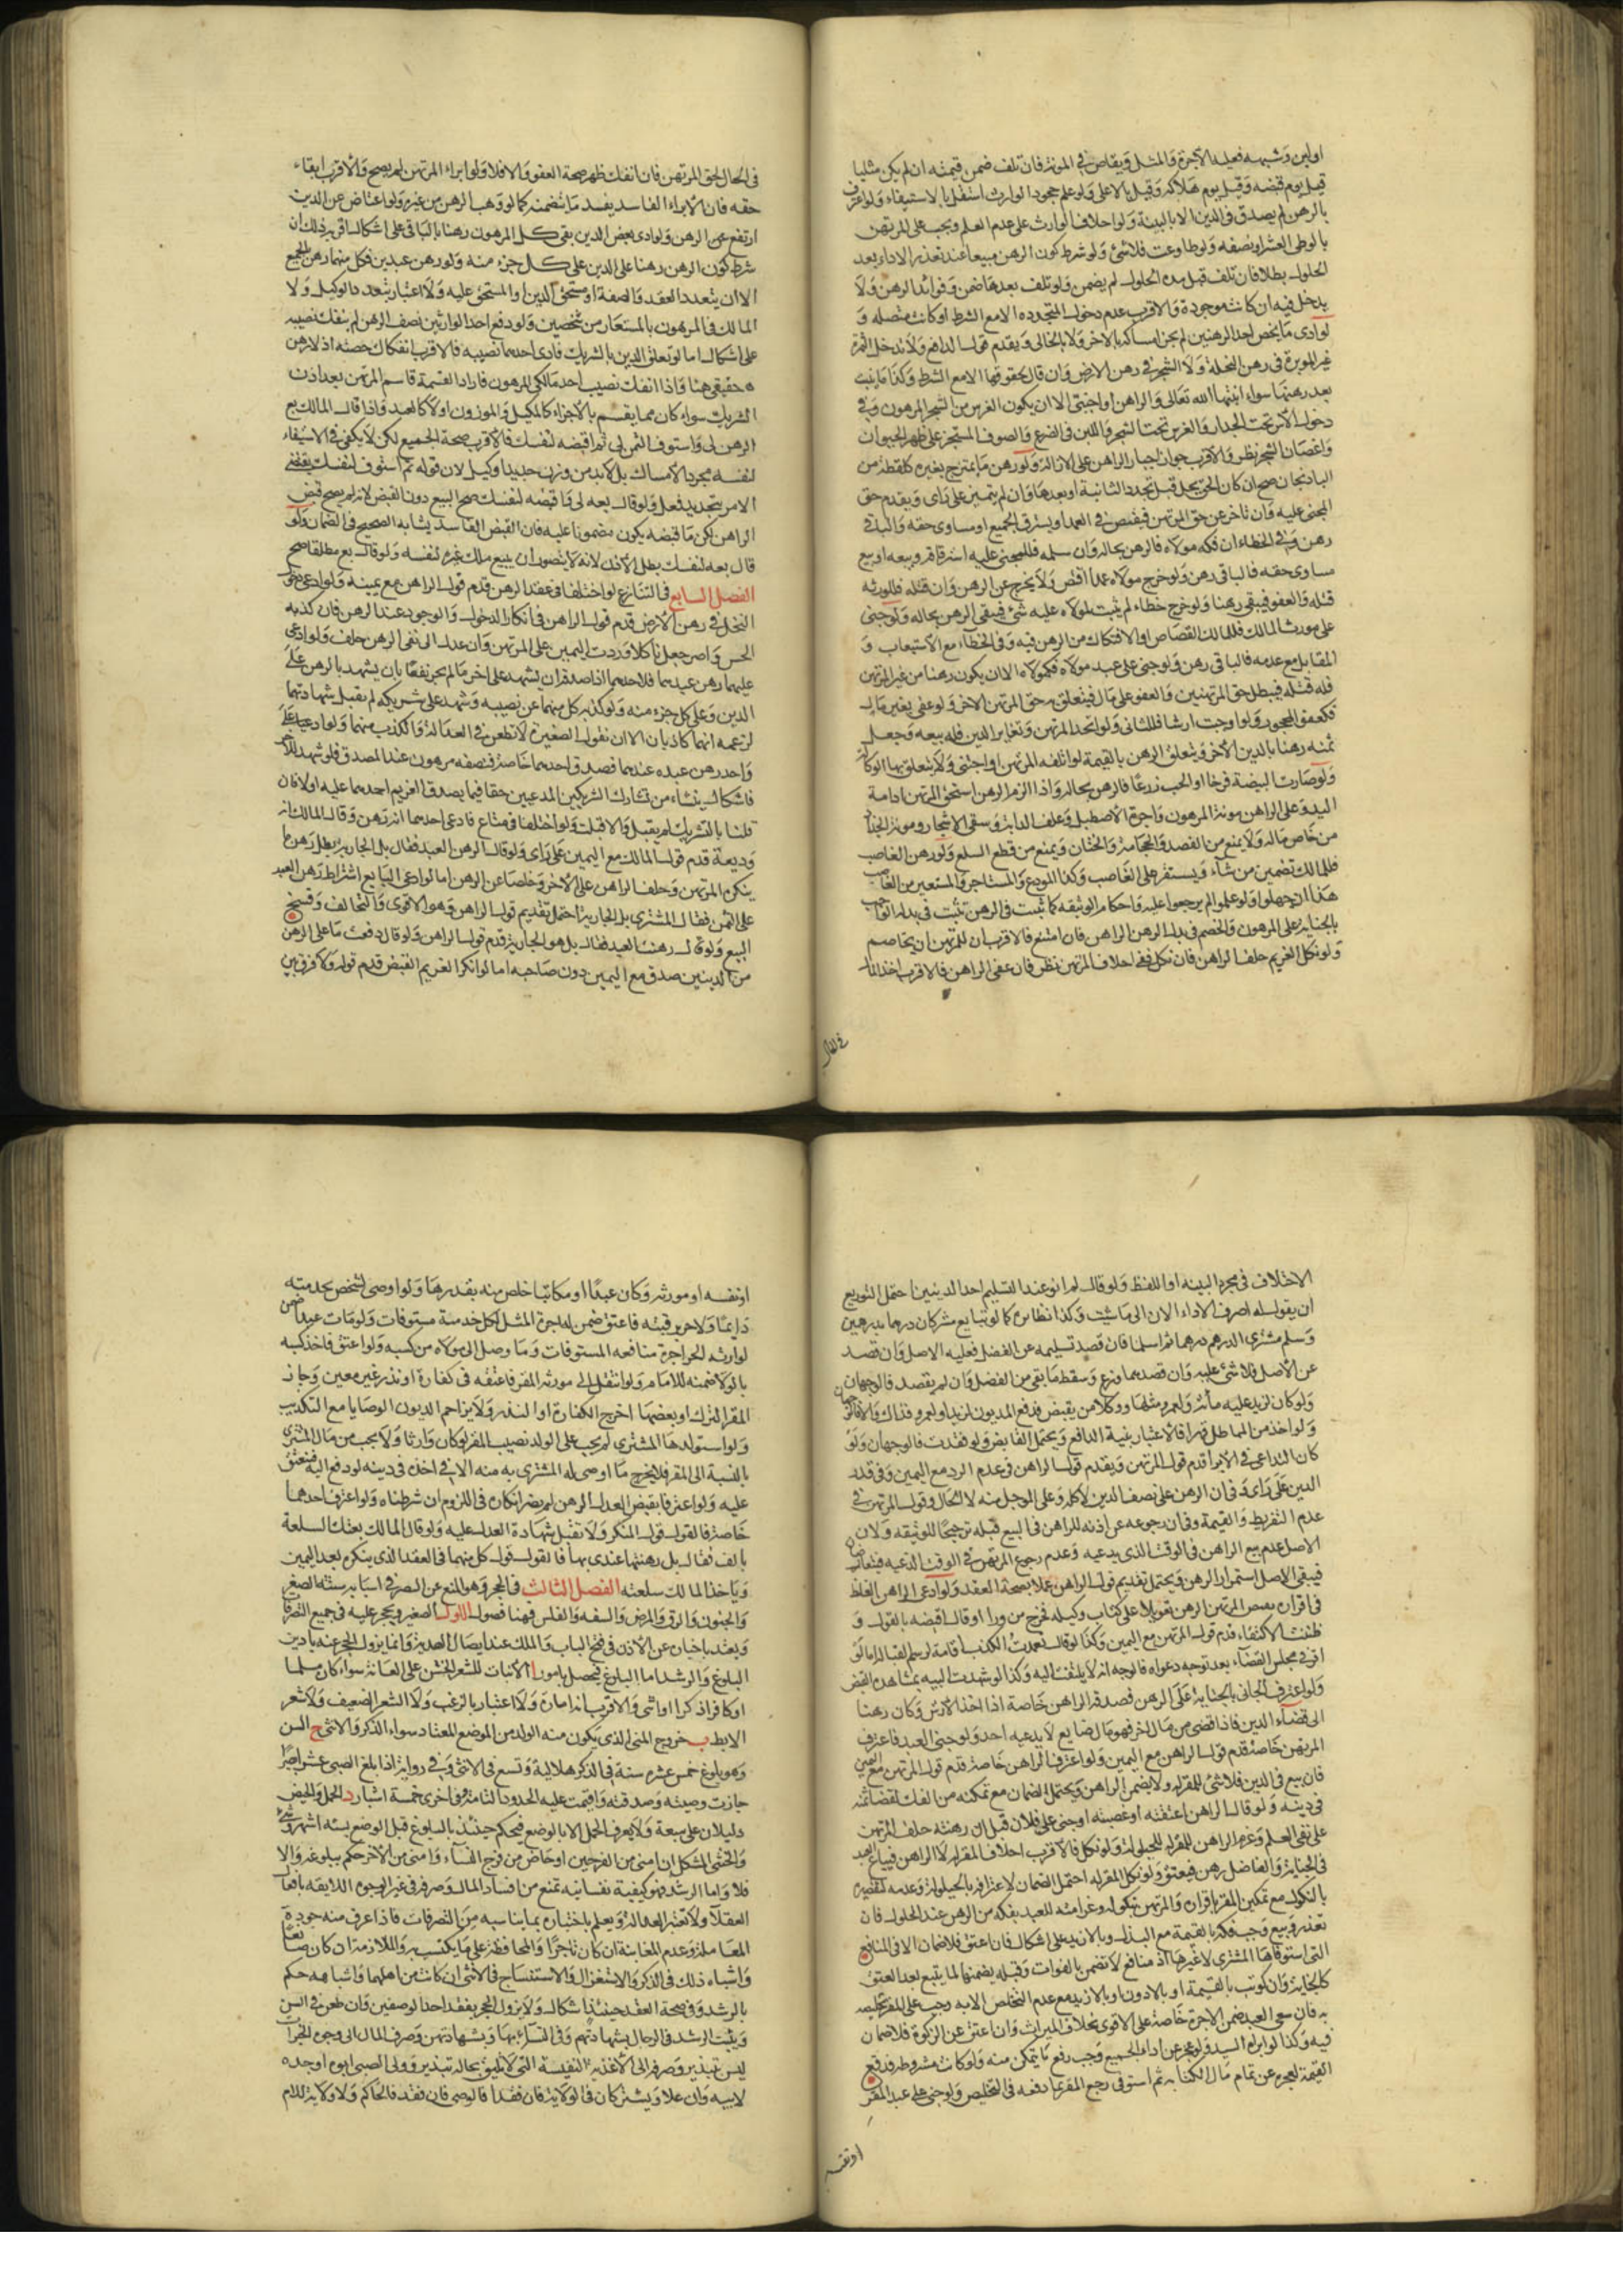 او لبن وشبهه فعليه الاجرة والمثل ويقاص في المونة فان تلف ضمن قيمته ان لم يكن مثليا
قبل يوم قبضه وقيل يوم هلاكه وقيل بالاعلى ولو علم جحود الوارث استقل بالاستيفاء ولو اعترف
بالرهن لم يصدق في الدين الا بالبينة وله احلاف الوارث على عدم العلم ويجب على المرتهن
بالوطى العشر او نصفه ولو طاوعت فلا شئ ولو شرط كون الرهن مبيعا عند تعذر الاداء بعد
الحلول بطلا فان تلف قبل مدة الحلول لم يضمن ولو تلف بعدها ضمن وفوائد الرهن ولا
يدخل فيه ان كانت موجودة والاقرب عدم دخول المتجددة الا مع الشرط او كانت متصلة و
لو ادى ما يخص احد الرهنين لم يجز امساكه بالاخر ولا بالخالى ويقدم قول الدافع ولا تدخل الثمرة
غير الموبرة في رهن النخلة ولا الشجر في رهن الارض وان قال بحقوقها الا مع الشرط وكذا ما ينبت
بعد رهنها سواء انبتها الله تعالى والراهن او اجنبى الا ان يكون الغرس من الشجر المرهون وفي
دخول الاس تحت الجدار والغرس تحت الشجر واللبن في الضرع والصوف المستجز على ظهر الحيوان
واغصان الشجر نظر والاقرب جواز اجبار الراهن على الازالة ولو رهن ما يمتزج بغيره كلقطة من
الباذنجان صح ان كان الحق يحل قبل تجدد الثانية او بعدها وان لم يتميز على راى ويقدم حق
المجنى عليه وان تاخر عن حق المرتهن فيقتص في العمد او يسترق الجميع او مساوى حقه والباقى
رهن وفي الخطاء ان فكه مولاه فالرهن بحاله وان سلمه فللمجنى عليه استرقاقه وبيعه او بيع
مساوى حقه فالباقى رهن ولو جرح مولاه عمدا اقتص ولا يخرج عن الرهن وان قتله فللورثه
قتله والعفو فيبقى رهنا ولو جرح خطاء لم يثبت لمولاه عليه شئ فيبقى الرهن بحاله ولو جنى
على مورث المالك فللمالك القصاص او الافتكاك من الرهن فيه وفى الخطاء مع الاستيعاب و
المقابل مع عدمه فالباقى رهن ولو جنى على عبد مولاه فكمولاه الا ان يكون رهنا من غير المرتهن
فله قتله فيبطل حق المرتهنين والعفو على مال فيتعلق به حق المرتهن الاخر ولو عفى بغير مال
فكعفو المحجور ولو اوجبت ارشا فللثانى ولو اتحد المرتهن وتغاير الدين فله بيعه وجعل
ثمنه رهنا بالدين الاخر ويتعلق الرهن بالقيمة لو اتلفه المرتهن او اجنبى ولا يتعلق بها الوكالة
ولو صارت البيضة فرخا او الحب زرعا فالرهن بحاله واذا لزم الرهن استحق المرتهن ادامة
اليد وعلى الراهن مونة المرهون واجرة الاصطبل وعلف الدابة وسقى الاشجار ومونة الجذاذ
من خاص ماله ولا يمنع من الفصد والحجامة والختان ويمنع من قطع السلع ولو رهن الغاصب
فللمالك تضمين من شاء ويستقر على الغاصب وكذا المودع والمستاجر والمستعير من الغاصب
هذا ان جهلوا ولو علموا لم يرجعوا عليه واحكام الوثيقه كما تثبت في الرهن تثبت في بدله الواجب
بالجناية على المرهون والخصم في بدل الرهن الراهن فان امتنع فالاقرب ان للمرتهن ان يخاصم
ولو نكل الغريم حلف الراهن فان نكل ففى احلاف المرتهن نظر فان عفى الراهن فالاقرب اخذ المال
في الحال لحق المرتهن فان انفك ظهر صحة العفو والا فلا ولو ابراء المرتهن لم يصح والاقرب ابقاء
حقه فان الابراء الفاسد يفسد ما تضمنه كما لو وهب الرهن من غيره ولو اعتاض عن الدين
ارتفع عن الرهن ولو ادى بعض الدين بقى كل المرهون رهنا بالباقى على اشكال اقربه ذلك ان
شرط كون الرهن رهنا على الدين على كل جزء منه ولو رهن عبدين فكل منهما رهن بالجميع
الا ان يتعدد العقد والصفقة او مستحق الدين او المستحق عليه ولا اعتبار بتعدد الوكيل ولا
المالك في المرهون بالمستعار من شخصين ولو دفع احد الوارثين نصف الرهن لم ينفك نصيبه
على اشكال اما لو تعلق الدين بالشريك فادى احدهما نصيبه فالاقرب انفكاك حصته اذ لا رهن
حقيقى هنا واذا انفك نصيب احد مالكى المرهون فاراد القسمة قاسم المرتهن بعد اذن
الشريك سواء كان مما يقسم بالاجزاء كالمكيل والموزون او لا كالعبد واذا قال المالك بع
الرهن لى واستوف الثمن لى ثم اقبضه لنفسك فالاقرب صحة الجميع لكن لا يكفى في الاستيفاء
لنفسه مجرد الامساك بل لابد من وزن جديد او كيل لان قوله ثم استوف لنفسك يقتضى
الامر بتجديد فعل ولو قال بعه لى واقبضه لنفسك صح البيع دون القبض لانه لم يصح قبض
الراهن لكن ما قبضه يكون مضمونا عليه فان القبض الفاسد يشابه الصحيح في الضمان ولو
قال بعه لنفسك بطل الاذن لانه لا يتصور ان يبيع ملك غيره لنفسه ولو قال بع مطلقا صح
الفصل السابع في التنازع لو اختلفا في عقد الرهن قدم قول الراهن مع يمينه ولو ادعى دخول
النخل في رهن الارض قدم قول الراهن في انكار الدخول والوجود عند الرهن فان كذبه
الحس واصر جعل ناكلا وردت اليمين على المرتهن وان عدل الى نفى الرهن حلف ولو ادعى
عليهما رهن عبدهما فلاحدهما اذا صدق ان يشهد على اخر ما لم يجر نفعا بان يشهد بالرهن على
الدين وعلى كل جزء منه ولو كذب كل منهما عن نصيبه وشهد على شريكه لم تقبل شهادتهما
لزعمه انهما كاذبان الا ان نقول الصغيرة لا تطعن في العدالة والكذب منهما ولو ادعيا على
واحد رهن عبده عندهما فصدق احدهما خاصة فنصفه مرهون عند المصدق فلو شهد للاخر
فاشكال ينشاء من تشارك الشريكين المدعيين حقا فيما يصدق الغريم احدهما عليه او لا فان
قلنا بالتشريك لم يقبل والا قبلت ولو اختلفا في متاع فادعى احدهما انه رهن وقال المالك انه
وديعة قدم قول المالك مع اليمين على راى ولو قال الرهن العبد فقال بل الجارية بطل رهن ما
ينكره المرتهن وحلف الراهن على الاخر وخلصا عن الرهن اما لو ادعى البايع اشتراط رهن العبد
على الثمن فقال المشترى بل الجارية احتمل تقديم قول الراهن وهو الاقوى والتحالف وفسخ
البيع ولو قال رهنت العبد فقال بل هو الجارية قدم قول الراهن ولو قال دفعت ما على الرهن
من الدينين صدق مع اليمين دون صاحبه اما لو انكر الغريم القبض قدم قوله ولا فرق بين
في الحال
الاختلاف في مجرد البينه او اللفظ ولو قال لم انو عند التسليم احد الدينين احتمل التوزيع
ان يقول له اصرف الاداء الان الى ما شئت وكذا نظائره كما لو تبايع مشركان درهما بدرهمين
وسلم مشترى الدرهم درهما ثم اسلما فان قصد تسليمه عن الفضل فعليه الاصل وان قصد
عن الاصل فلا شئ عليه وان قصدهما وزع وسقط ما بقى من الفضل وان لم يقصد فالوجهان
ولو كان لزيد عليه مأة ولعمرو مثلها ووكلا من يقبض فدفع المديون لزيد او لعمرو فذاك والا فالوجهان
ولو اخذ من المماطل قهرا فالاعتبار بنية الدافع ويحتمل القابض ولو فقدت فالوجهان ولو
كان التداعى في الابراء قدم قول المرتهن ويقدم قول الراهن في عدم الرد مع اليمين وفى قدر
الدين على راى وفى ان الرهن على نصف الدين لا كله وعلى الموجل منه لا الحال وقول المرتهن في
عدم التفريط والقيمة وفى ان رجوعه عن اذنه للراهن في البيع قبله ترجيحا للوثيقه ولان
الاصل عدم بيع الراهن في الوقت الذى يدعيه وعدم رجوع المرتهن في الوقت الذى يدعيه فيتعارضان
فيبقى الاصل استمرار الرهن ويحتمل تقديم قول الراهن عملا بصحة العقد ولو ادعى الراهن الغلط
في اقراره بقبض المرتهن الرهن تعويلا على كتاب وكيله فخرج مزورا او قال اقبضه بالقول و
ظننت الاكتفاء قدم قول المرتهن مع اليمين وكذا لو قال تعمدت الكذب اقامة لرسم القبالة اما لو
اقر في مجلس القضاء بعد توجه دعواه فالوجه انه لا يلتفت اليه وكذا لو شهدت البينه بمشاهدة القبض
ولو اعترف الجانى بالجناية على الرهن فصدقه الراهن خاصة اذا اخذ الارش وكان رهنا
الى قضاء الدين فاذا قضى من مال اخر فهو مال ضايع لا يدعيه احد ولو جنى العبد فاعترف
المرتهن خاصة قدم قول الراهن مع اليمين ولو اعترف الراهن خاصة قدم قول المرتهن مع اليمين
فان بيع في الدين فلا شئ للمقر له ولا يضمن الراهن ويحتمل الضمان مع تمكنه من الفك لقضاء ثمنه
في دينه ولو قال الراهن اعتقته او غصبته او جنى على فلان قبل ان رهنته حلف المرتهن
على نفى العلم وغرم الراهن للمقر له للحيلولة ولو نكل فالاقرب احلاف المقر له لا الراهن فيباع العبد
في الجناية والفاضل رهن فيعتق ولو نكل المقر له احتمل الضمان لاعترافه بالحيلولة وعدمه لتقصيره
بالنكول مع تمكين المقر باقراره والمرتهن بنكوله وغرامته للعبد بفكه من الرهن عند الحلول فان
تعذر وبيع وجب فكه بالقيمة مع البذل وبالازيد على اشكال فان اعتق فلا ضمان الا في المنافع
التى استوفاها المشترى لا غيرها اذ منافع لا تضمن بالفوات وقيل يضمنها لما يتبع بعد العتق
كالجناية وان كوتب بالقيمة او بالادون او بالازيد مع عدم التخلص الا به وجب على المقر تخليصه
به فان سعى العبد ضمن الاجرة خاصة على الاقوى بخلاف الميراث وان اعتق عن الزكوة فلا ضمان
فيه وكذا لو ابراه السيد ولو عجز عن اداء الجميع وجب رفع ما يتمكن منه ولو كانت مشروطة فدفع
القيمة لعجزه عن تمام مال الكتابة ثم استوفى رجع المقر بما دفعه في التخليص ولو جنى على عبد المقر
او نفسه او مورثه وكان عبدا او مكاتبا خلص منه بقدرها ولو اوصى لشخص بخدمته
دايما ولاخر برقبته فاعتق ضمن له اجرة المثل لكل خدمة مستوفات ولو مات عبدا ضمن
لوارثه الحر اجرة منافعه المستوفات وما وصل الى مولاه من كسبه ولو اعتق فاخذ كسبه
بالولا ضمنه للامام ولو انتقل الى مورثه المقر فاعتقه في كفارة او نذر غير معين وجاز
المقر الترك او بعضها اخرج الكفارة او النذر ولا يزاحم الديون الوصايا مع التكذيب
ولو استولدها المشترى لم يجب على الولد نصيب المقر لو كان وارثا ولا يجب من مال المشترى
بالنسبة الى المقر فلا يخرج ما اوصى له المشترى به منه الا في اخذه في دينه لو دفع اليه فيعتق
عليه ولو اعترفا بقبض العدل الرهن لم يضر انكاره في اللزوم ان شرطناه ولو اعترف احدهما
خاصة فالقول قول المنكر ولا تقبل شهادة العدل عليه ولو قال المالك بعتك السلعة
بالف فقال بل رهنتها عندى بها فالقول قول كل منهما في العقد الذى ينكره بعد اليمين
وياخذ المالك سلعته الفصل الثالث في الحجر وهو المنع عن التصرف واسبابه ستة الصغر
والجنون والرق والمرض والسفه والفلس فهنا فصول الاول الصغير ويحجر عليه في جميع التصرفات
ويعتد باخباره عن الاذن في فتح الباب والملك عند ايصال الهدية وانما يزول الحجر عنه بامرين
البلوغ والرشد اما البلوغ فيحصل بامور ا الانبات للشعر الخشن على العانة سواء كان مسلما
او كافرا ذكرا او انثى والاقرب انه امارة ولا اعتبار بالزغب ولا الشعر الضعيف ولا شعر
الابط ب خروج المنى الذى يكون منه الولد من الموضع المعتاد سواء الذكر والانثى ج السن
وهو بلوغ خمس عشره سنة في الذكر هلالية وتسع في الانثى وفي رواية اذا بلغ الصبى عشرا بصيرا
جازت وصيته وصدقته واقيمت عليه الحدود التامة وفي اخرى خمسة اشبار د الحمل والحيض
دليلان على سبقه ولا يعرف الحمل الا بالوضع فيحكم حينئذ بالبلوغ قبل الوضع بستة اشهر وشئ
والخنثى المشكل ان امنى من الفرجين او حاض من فرج النساء وامنى من الاخر حكم ببلوغه والا
فلا واما الرشد فهو كيفية نفسانيه تمنع من افساد المال وصرفه في غير الوجوه اللايقه بافعال
العقلاء ولا تعتبر العدالة ويعلم باختباره بما يناسبه من التصرفات فاذا عرف منه جودة
المعاملة وعدم المغابنة ان كان تاجرا والمحافظة على ما يكتسب به والملازمة ان كان صانعا
واشباه ذلك في الذكر والاستغزال والاستنساج في الانثى ان كانت من اهلهما واشباهه حكم
بالرشد وفي صحة العقد حينئذ اشكال ولا يزول الحجر بفقد احد الوصفين وان طعن في السن
ويثبت الرشد في الرجال بشهادتهم وفى النساء بها وبشهادتهن وصرف المال الى وجوه الخيرات
ليس تبذير وصرفه الى الاغذية النفيسة التى لا تليق بحاله تبذير وولى الصبى ابوه او جده
لابيه وان علا ويشتركان في الولاية فان فقدا فالوصى فان فقد فالحاكم ولا ولاية للام
او نفسه